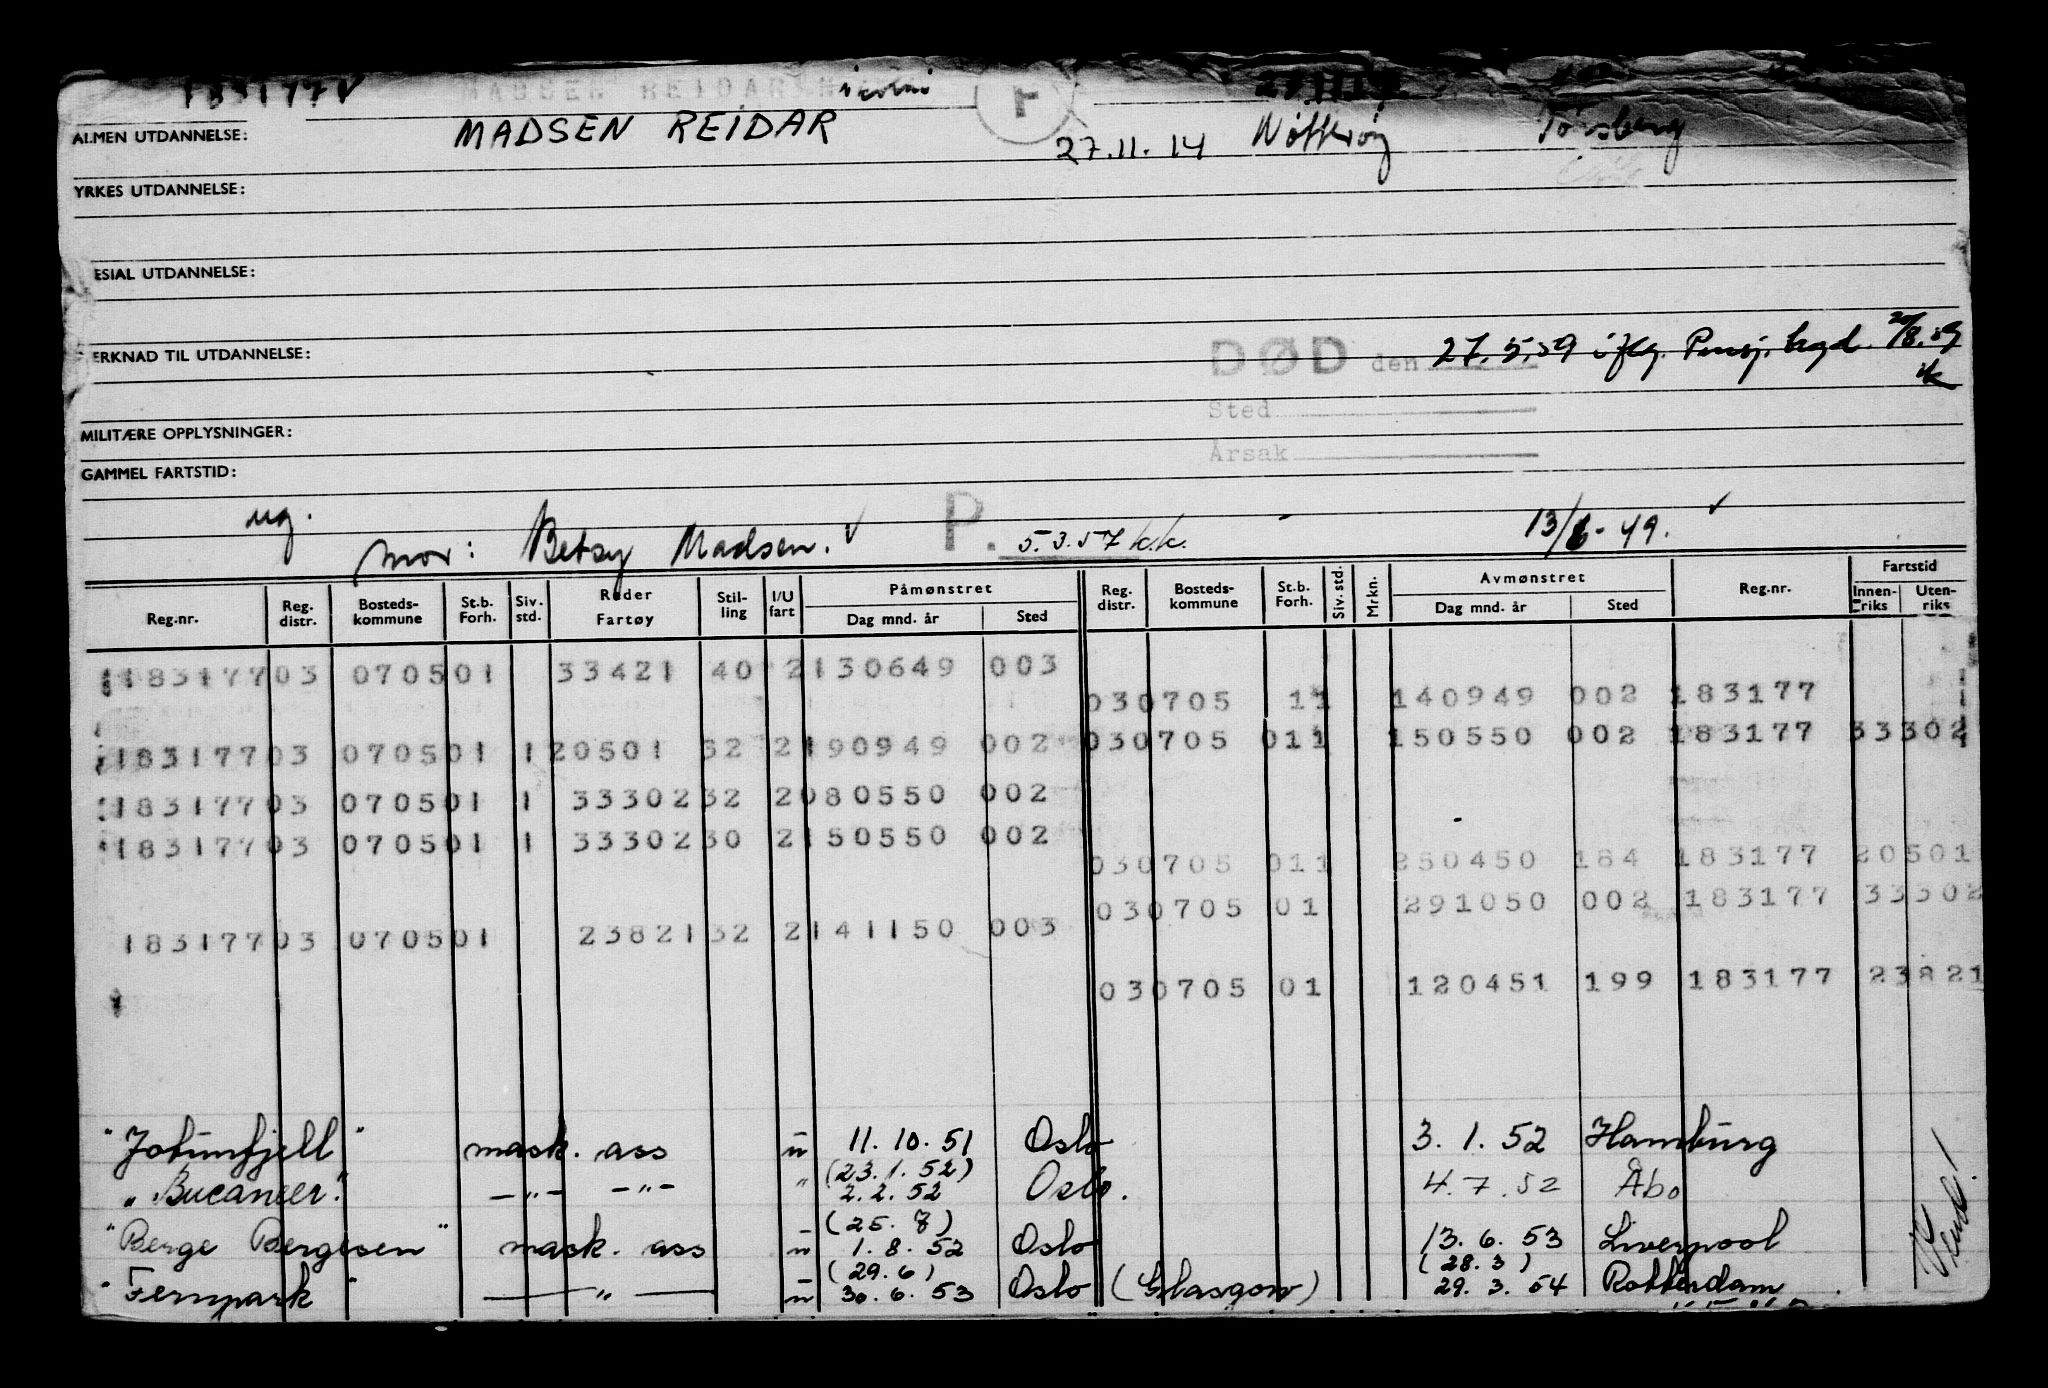 183177 MADSEN REIDAR
ALMEN UTDANNELSE: MADSEN REIDAR 27.11.14 Nøtterøy Tønsberg
YRKES UTDANNELSE:
ESIAL UTDANNELSE:
ERKNAD TIL UTDANNELSE: DØD den 27.5.59 iflg. Pensj. 20/8.59
Sted
MILITÆRE OPPLYSNINGER: Årsak
GAMMEL FARTSTID:
ug.
mor: Betsy Madsen. P. 5.3.57 k.k. 13/6-49.
Reg.nr. Reg. distr. Bosteds-kommune St.b. Forh. Siv. std. Reder Fartøy Stil-ling I/U fart Påmønstret Dag mnd. år Sted Reg. distr. Bosteds-kommune St.b. Forh. Siv. std. Mrkn. Avmønstret Dag mnd. år Sted Reg.nr. Fartstid Innen-riks Uten-riks
18317703 070501 33421 40 2130649 003
030705 11 140949 002 183177
18317703 070501 120501 32 2190949 002 030705 011 150550 002 183177 33302
18317703 070501 1 3330232 2080550 002
18317703 070501 1 3330230 2150550 002
030705 011 250450 184 183177 20501
030705 01 291050 002 183177 33302
18317703 070501 2382132 2141150 003
030705 01 120451 199 183177 23821
"Jotunfjell" mask. ass u 11.10.51 Oslo 3.1.52 Hamburg
(23.1.52)
"Bucaneer" —"— —"— " 2.2.52 Oslo. 4.7.52 Åbo
(25.7)
"Berge Bergesen" mask. ass u 1.8.52 Oslo 13.6.53 Liverpool
(29.6) (28.3)
"Fernpark" —"— u 30.6.53 Oslo (Glasgow) 29.3.54 Rotterdam